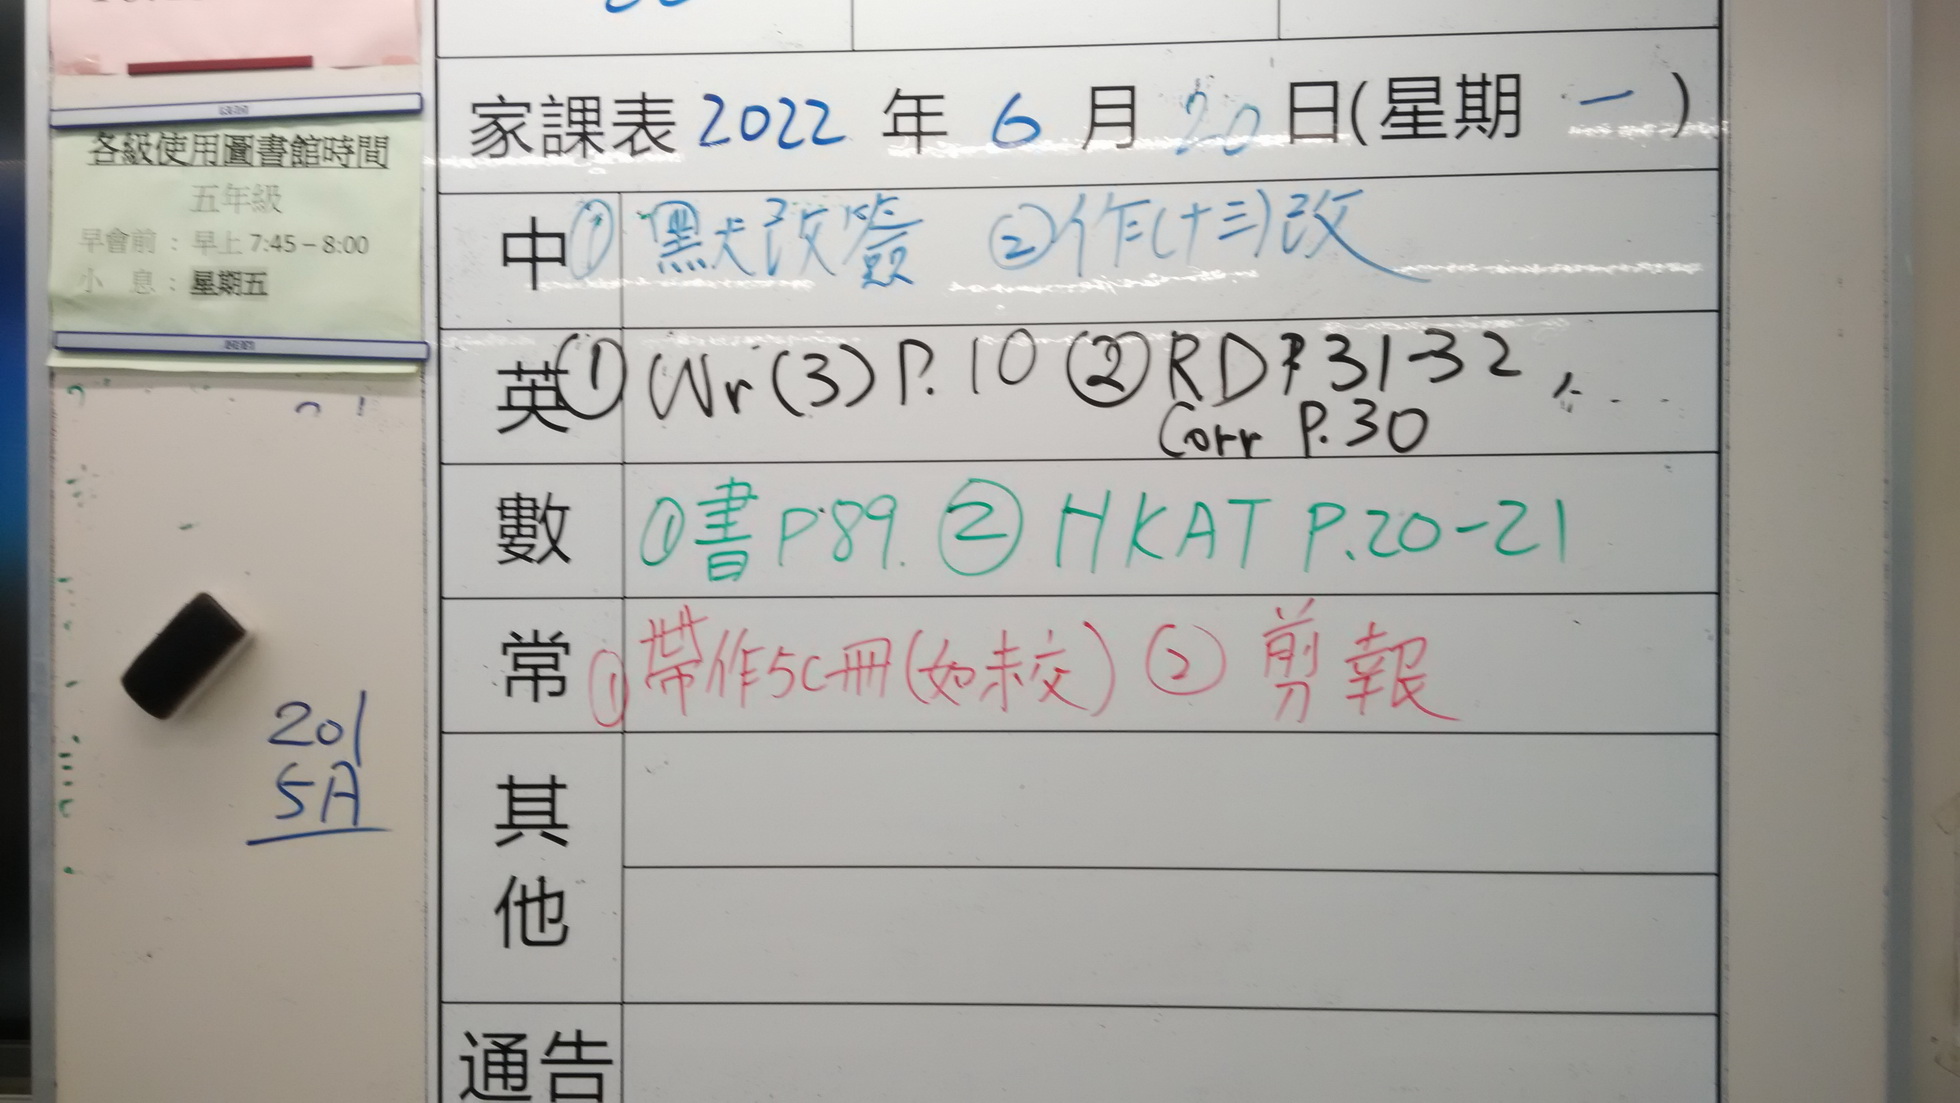 各級使用圖書館時間
五年級
早會前：早上 7:45 – 8:00
小 息：星期五
201
5A
家課表 2022 年 6 月 20 日(星期 一)
中 ① 默改簽 ② 作(十三)改
英 ① Wr (3) P. 10 ② RD P.31-32
Corr P.30
數 ① 書 P.89. ② HKAT P.20-21
常 ① 帶作5C冊(如未交) ② 剪報
其他
通告